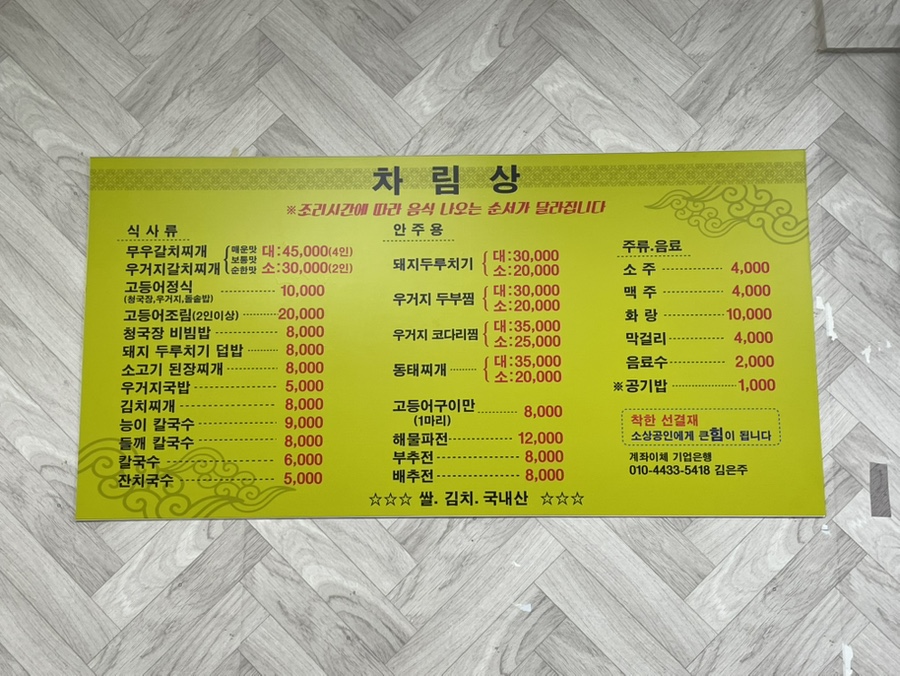 차 림 상
※조리시간에 따라 음식 나오는 순서가 달라집니다
식 사 류
무우갈치찌개
우거지갈치찌개
매운맛
보통맛
순한맛
대:45,000(4인)
소:30,000(2인)
고등어정식 10,000
(청국장,우거지,돌솥밥)
고등어조림(2인이상) 20,000
청국장 비빔밥 8,000
돼지 두루치기 덥밥 8,000
소고기 된장찌개 8,000
우거지국밥 5,000
김치찌개 8,000
능이 칼국수 9,000
들깨 칼국수 8,000
칼국수 6,000
잔치국수 5,000
안 주 용
돼지두루치기 대:30,000
소:20,000
우거지 두부찜 대:30,000
소:20,000
우거지 코다리찜 대:35,000
소:25,000
동태찌개 대:35,000
소:20,000
고등어구이만 8,000
(1마리)
해물파전 12,000
부추전 8,000
배추전 8,000
주류.음료
소 주 4,000
맥 주 4,000
화 랑 10,000
막걸리 4,000
음료수 2,000
※공기밥 1,000
착한 선결재
소상공인에게 큰힘이 됩니다
계좌이체 기업은행
010-4433-5418 김은주
☆☆☆ 쌀. 김치. 국내산 ☆☆☆